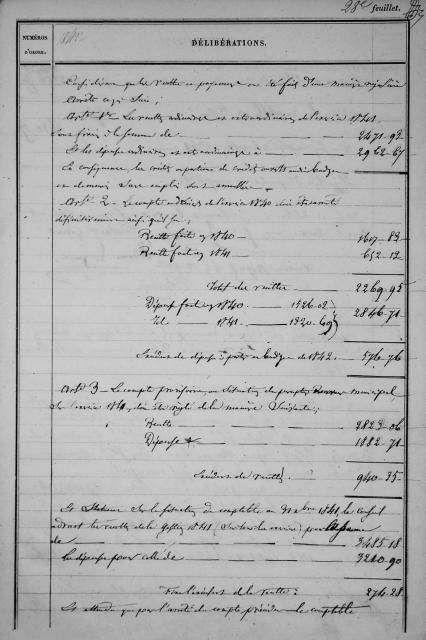 28e feuillet.
NUMÉROS
D'ORDRE.
DÉLIBÉRATIONS.
Considérant que les recettes et payement ont été fait d'une manière régulière
Arrête ce qui suit;
Art. 1er Les recettes ordinaires et extraordinaires de l'exercice 1841
sont fixés à la somme de 2471-92
Et les dépenses ordinaires et extraordinaires à 2962-67
En conséquence les crédits ou portions de crédits ouverts au budget
et demeurés sans emploi sont annullés.
Art. 2 - Le compte de l'exercice 1840 est arrêté
définitivement ainsi qu'il suit,
Recette faite en 1840 1617-83
Recette faite en 1841 652-12
Total des recettes 2269-95
Dépense faite en 1840 1526-02
Id 1841 1320-69
2846-71
Excédent de dépense à porter au budget de 1842. 576-76
Art. 3 - Le compte provisoire, ou situation du percepteur receveur municipal
sur l'exercice 1841, doit être réglé de la manière suivante;
Recette 2823-06
Dépense 1882-71
Excédent de recette 940-35
Et statuant sur la situation du comptable au 31 Xbre 1841, le conseil
admet les recettes de la gestion 1841 (sur tous les exercices) pour la somme
de 3485-18
La dépense pour celle de 3210-90
Fixe l'excédent de la recette à 274-28
Et attendu que par l'arrêté du compte précédent le comptable